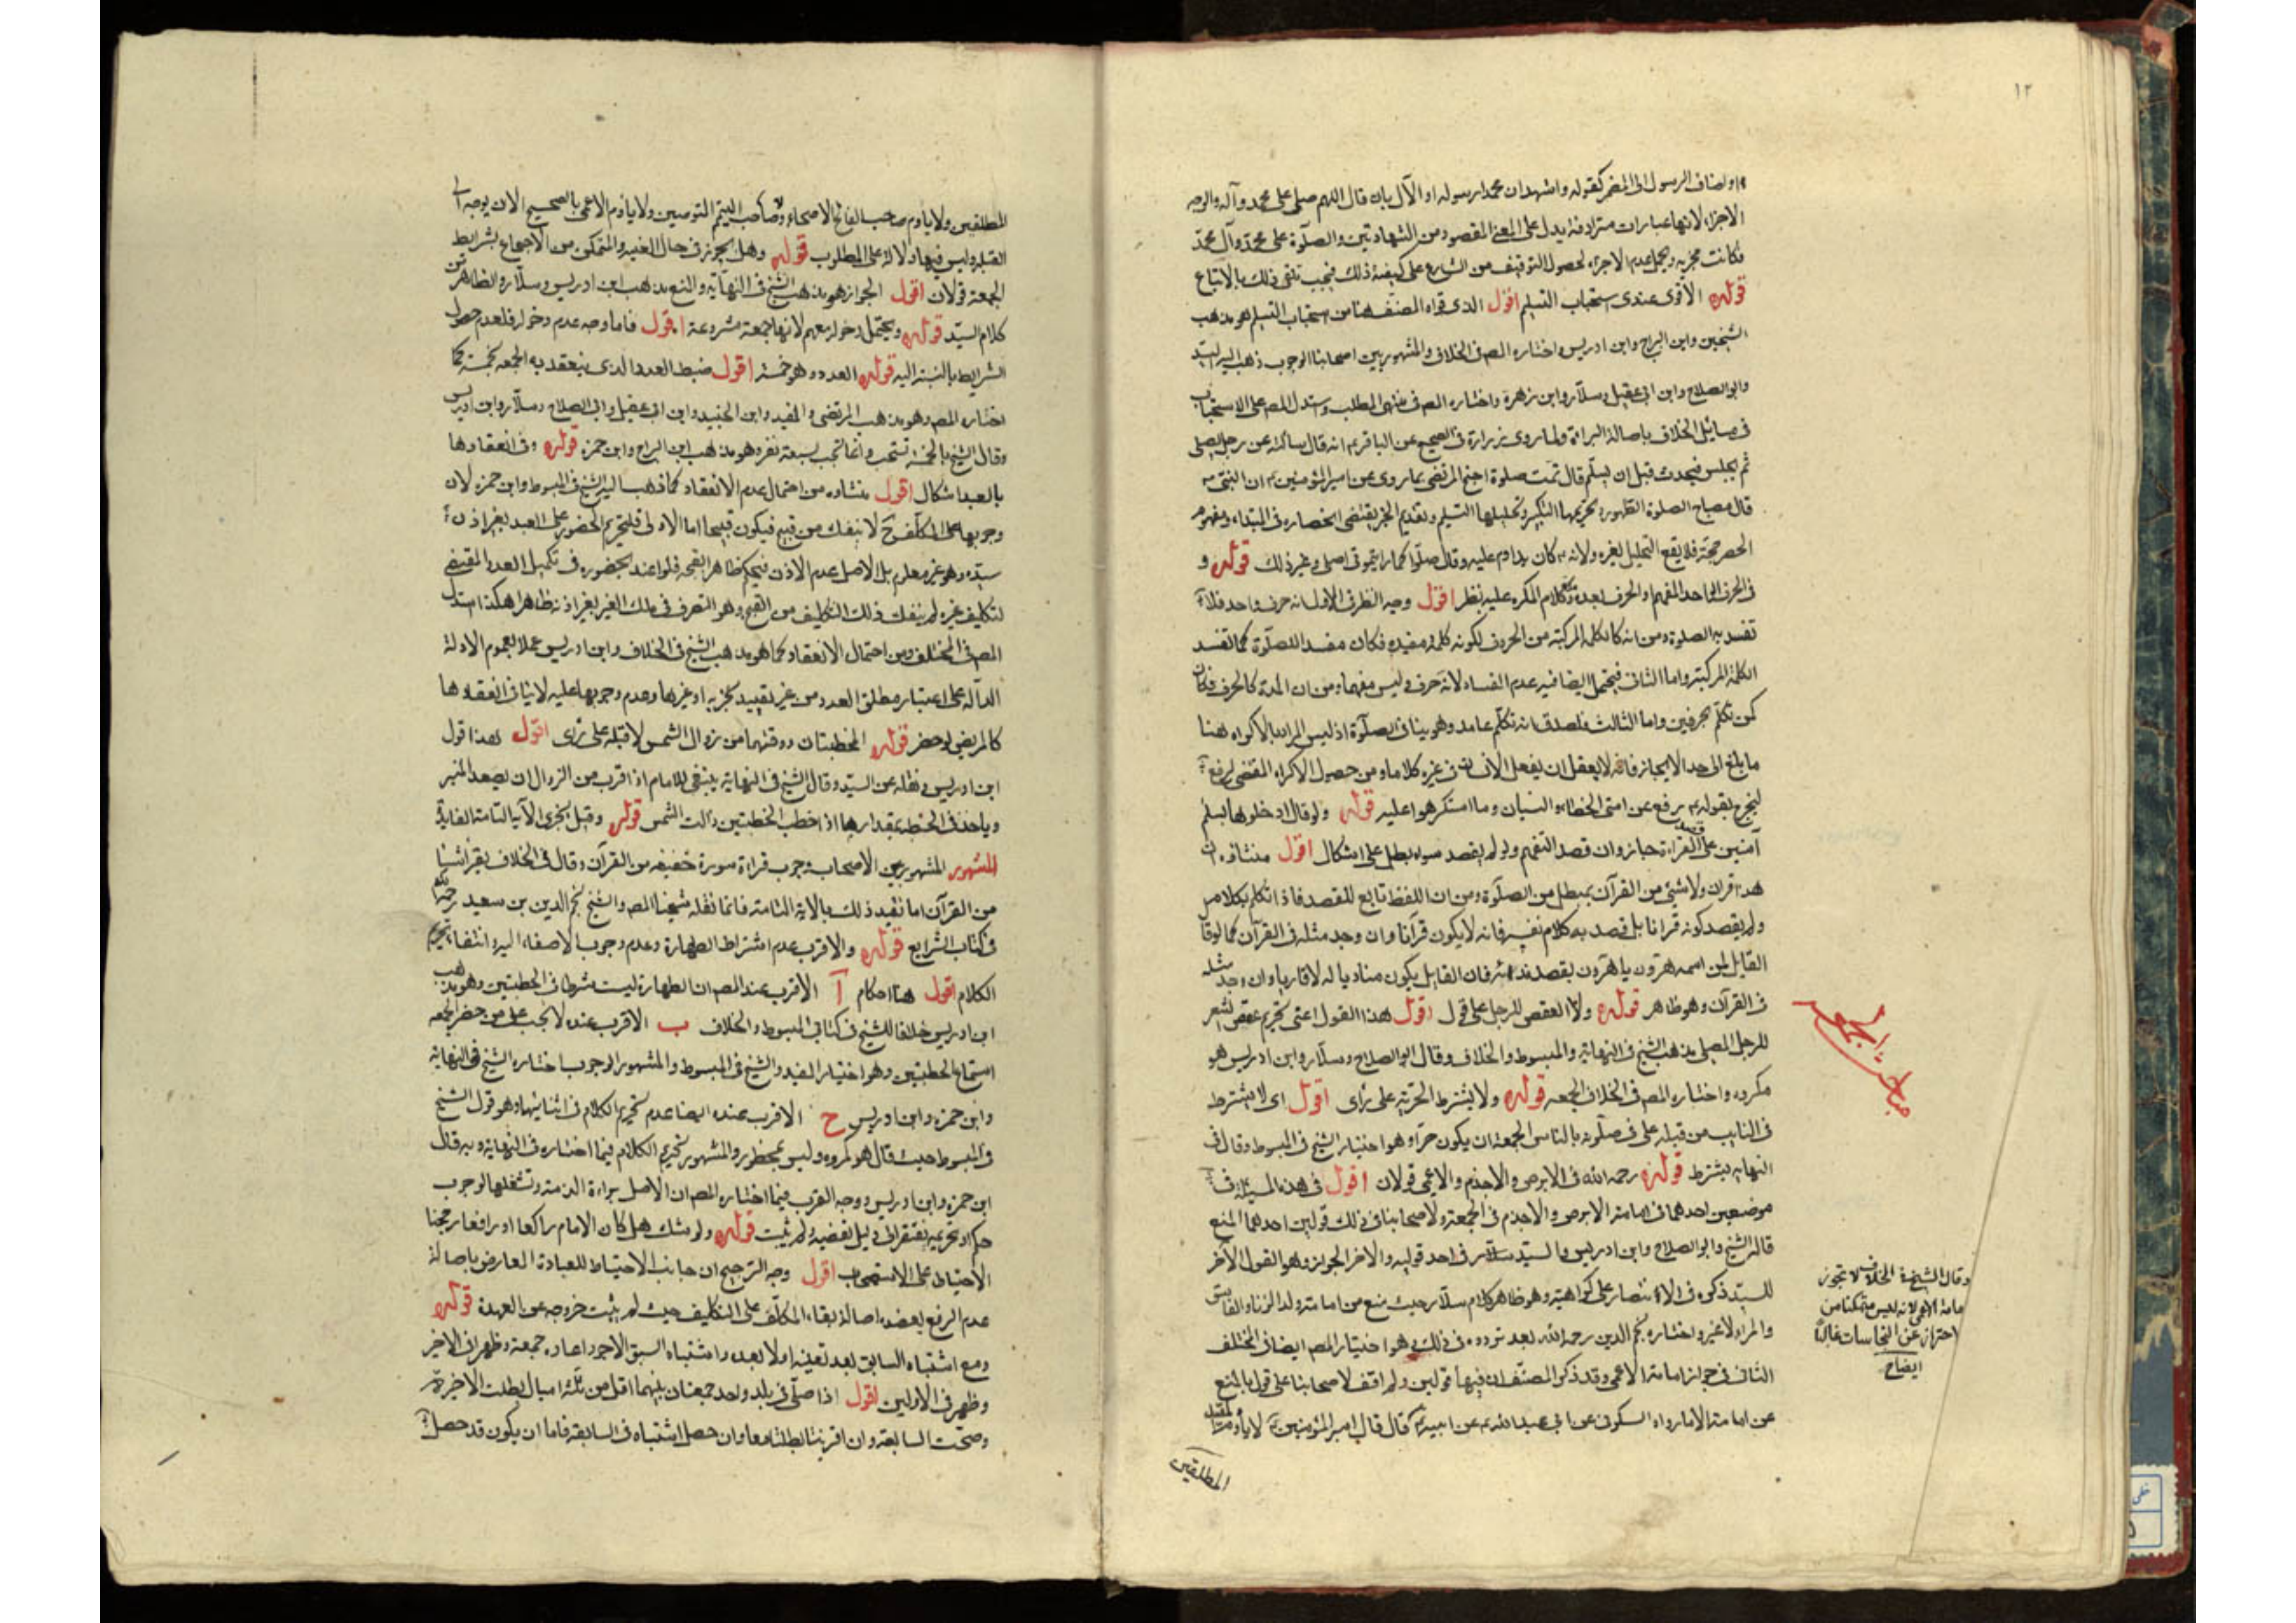 ١٢
او اضاف الرسول الى المضمر كقوله واشهد ان محمدا رسوله او الآل بان قال اللهم صل على محمد وآله والوجه
الاجزاء لانها عبارات مترادفة يدل على المعنى المقصود من الشهادتين والصلوة على محمد وآل محمد
فكانت مجزيه ويحتمل عدم الاجزاء لحصول التوقيف من الشارع على كيفية ذلك فيجب تلقى ذلك بالاتباع
قوله الاقوى عندى استحباب التسليم اقول الذى قواه المصنف هنا من استحباب التسليم هو مذهب
الشيخين وابن البراج وابن ادريس واختاره المص فى الخلاف والمشهور بين اصحابنا الوجوب ذهب اليه السيد
وابو الصلاح وابن ابى عقيل وسلار وابن زهرة واختاره المص فى منتهى المطلب واستدل المص على الاستحباب
فى مسائل الخلاف باصالة البراءة ولما روى زرارة فى الصحيح عن الباقر انه قال سألته عن رجل يصلى
ثم يجلس فيحدث قبل ان يسلم قال تمت صلوة احتج المرتضى بما روى عن امير المؤمنين ان النبى
قال مفتاح الصلوة الطهور وتحريمها التكبير وتحليلها التسليم وتقديم الخبر يقتضى انحصاره فى المبتداء ومفهوم
الحصر حجة فلا يقع التحليل بغيره ولانه كان يداوم عليه وقال صلوا كما رايتمونى اصلى وغير ذلك قوله و
فى الحرف الواحد المفهم والحرف بعده مدة وكلام المكره عليه نظر اقول وجه النظر فى الاول انه حرف واحد فلا
تفسد به الصلوة ومن انه كالكلمة المركبة من الحروف لكونه كلمة مفيدة فكان مفسدا للصلوة كما تفسد
الكلمة المركبة واما الثانى فيحتمل ايضا فيه عدم الفساد لانه حرف وليس مفهما ومن ان المدة كالحرف فكان
كمن تكلم بحرفين واما الثالث فلصدق انه تكلم عامدا وهو ينافى الصلوة اذ ليس المراد بالاكراه هنا
ما بلغ الى حد الايجاز فانه لا يعقل ان يفعل الانسان فى غيره كلاما ومن حصول الاكراه المقتضى لرفع
الحرج بقوله رفع عن امتى الخطاء والنسيان وما استكرهوا عليه قوله ولو قال ادخلوها بسلم
آمنين على قصد القراءة جاز وان قصد التفهيم ولو لم يقصد سواه بطل على اشكال اقول منشاؤه ان
هذا قرآن ولا شئ من القرآن بمبطل من الصلوة ومن ان اللفظ تابع للقصد فاذا تكلم بكلام
ولم يقصد كونه قرآنا بل قصد به كلام نفسه فانه لا يكون قرآنا وان وجد مثله فى القرآن كما لو قال
القايل لمن اسمه هرون يا هرون بقصد ندائه فان القايل يكون مناديا له لا قاريا وان وجد مثله
فى القرآن وهو ظاهر قوله ولا العقص للرجل على قول اقول هذا القول اعنى تحريم عقص الشعر
للرجل المصلى مذهب الشيخ فى النهاية والمبسوط والخلاف وقال ابو الصلاح وسلار وابن ادريس هو
مكروه واختاره المص فى الخلاف الجمعه قوله ولا يشترط الحرية على راى اقول اى لا يشترط
فى النايب من قبله على فى صلوته بالناس الجمعة ان يكون حرا وهو اختيار الشيخ فى المبسوط وقال فى
النهاية يشترط قوله رحمه الله فى الابرص والاجذم والاعمى قولان اقول فى هذه المسئلة فى
موضعين احدهما فى امامة الابرص والاجذم فى الجمعة ولاصحابنا فى ذلك قولين احدهما المنع
قاله الشيخ وابو الصلاح وابن ادريس والسيد سلار فى احد قوليه والاخر الجواز وهو القول الآخر
للسيد ذكره فى الانتصار على كراهية وهو ظاهر كلام سلار حيث منع من امامة ولد الزناء والفاسق
والمراد لا غير واختاره نجم الدين رحمه الله بعد تردده فى ذلك وهو اختيار المص ايضا فى المختلف
الثانى فى جواز امامة الاعمى وقد ذكر المصنف ان فيها قولين ولم اقف لاصحابنا على قول بالمنع
عن امامته الا ما رواه السكونى عن ابى عبد الله عن ابيه قال قال امير المؤمنين لا يأوم المقيد
المطلقين
مباحث الجمعه
وقال الشيخ فى الخلاف لا تجوز
امامة الاعمى لانه ليس متمكنا من
احتراز عن النجاسات غالبا
ايضاح
المطلقين ولا ياوم صاحب الفالج الاصحاء وصاحب التيمم المتوضين ولا ياوم الاعمى بالصحيح الا ان يوجه الى
القبلة وليس فيها دلالة على المطلوب قوله وهل يجوز فى حال الغيبة والتمكن من الاجتماع بشرايط
الجمعة قولان اقول الجواز هو مذهب الشيخ فى النهاية والمنع مذهب ابن ادريس وسلار والظاهر من
كلام السيد قوله ويحتمل دخوله معهم لانها جمعة مشروعة اقول فاما وجه عدم دخوله فلعدم حصول
الشرايط بالنسبة اليه قوله العدد وهو خمسة اقول ضبط العدد الذى ينعقد به الجمعه بخمسة كما
اختاره المص وهو مذهب المرتضى والمفيد وابن الجنيد وابن ابى عقيل وابى الصلاح وسلار وابن ادريس
وقال الشيخ بالخمسة تستحب وانما تجب بسبعة نفر وهو مذهب ابن البراج وابن حمزه قوله وفى انعقادها
بالعبد اشكال اقول منشاءه من احتمال عدم الانعقاد كما ذهب اليه الشيخ فى المبسوط وابن حمزه لان
وجوبها على المكلفين ح لا ينفك من قبيح فيكون قبيحا اما الاولى فلتحريم الحضور على العبد بغير اذن
سيده وهو غير معلوم بل الاصل عدم الاذن فيحكم ظاهرا بقبحه فلو اعتد بحضوره فى تكميل العدد المقتضى
لتكليف غيره لم ينفك ذلك التكليف من القبيح وهو التصرف فى ملك الغير بغير اذنه ظاهرا هكذا استدل
المص فى المختلف ومن احتمال الانعقاد كما هو مذهب الشيخ فى الخلاف وابن ادريس عملا بعموم الادلة
الدالة على اعتبار مطلق العدد من غير تقييد بحرية او غيرها وعدم وجوبها عليه لا ينافى انعقادها
كالمريض لو حضر قوله الخطبتان ووقتهما من زوال الشمس لا قبله على راى اقول هذا قول
ابن ادريس ونقله عن السيد وقال الشيخ فى النهاية ينبغى للامام اذا اقرب من الزوال ان يصعد المنبر
وياخذ فى الخطبة بمقدار ما اذا خطب الخطبتين زالت الشمس قوله وقيل يجزى الآية التامة الفايدة
المشهور المشهور بين الاصحاب وجوب قراءة سورة خفيفه من القرآن وقال فى الخلاف يقرا شيئا
من القرآن اما تقييد ذلك بالآية التامة فانما نقله شيخنا المص والشيخ نجم الدين بن سعيد رحمه الله
فى كتاب الشرايع قوله والاقرب عدم اشتراط الطهارة وعدم وجوب الاصغاء اليه وانتفاء تحريم
الكلام اقول هنا احكام آ الاقرب عند المص ان الطهارة ليست شرطا فى الخطبتين وهو مذهب
ابن ادريس خلافا للشيخ فى كتابى المبسوط والخلاف ب الاقرب عنده لا يجب على من حضر الجمعه
استماع الخطبتين وهو اختيار المفيد والشيخ فى المبسوط والمشهور الوجوب اختاره الشيخ فى النهاية
وابن حمزه وابن ادريس ح الاقرب عنده ايضا عدم تحريم الكلام فى اثنائها وهو قول الشيخ
فى المبسوط حيث قال هو مكروه وليس بمحظور والمشهور تحريم الكلام فيما اختاره فى النهاية وبه قال
ابن حمزه وابن ادريس ووجه القرب فيما اختاره المص ان الاصل براءة الذمة وشغلها لوجوب
حكم او تحريمه يفتقر الى دليل تقضيه ولم يثبت قوله ولو شك هل كان الامام راكعا او رافعا رجحنا
الاحتياط على الاستصحاب اقول وجه الترجيح ان جانب الاحتياط للعبادة المعارض باصالة
عدم الرفع يعضده اصالة بقاء المكلف على التكليف حيث لم يثبت خروجه عن العهدة قوله
ومع اشتباه السابق بعد تعينه او لا بعده واشتباه السبق الاجود اعادة جمعة وظهر فى الاخير
وظهر فى الاولين اقول اذا صلى فى بلد واحد جمعتان بينهما اقل من ثلثة اميال بطلت الاخيرة
وصحت السابقة وان اقترنتا بطلتا معا وان حصل اشتباه فى السابقة فاما ان يكون قد حصل